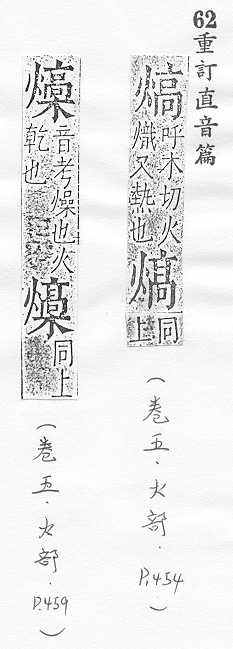 62重訂直音篇
熇
呼木切火
熾又熱也
同
上
(卷五·火部·P.454)
燺
音考燥也火
乾也
同上
(卷五·火部·P.459)